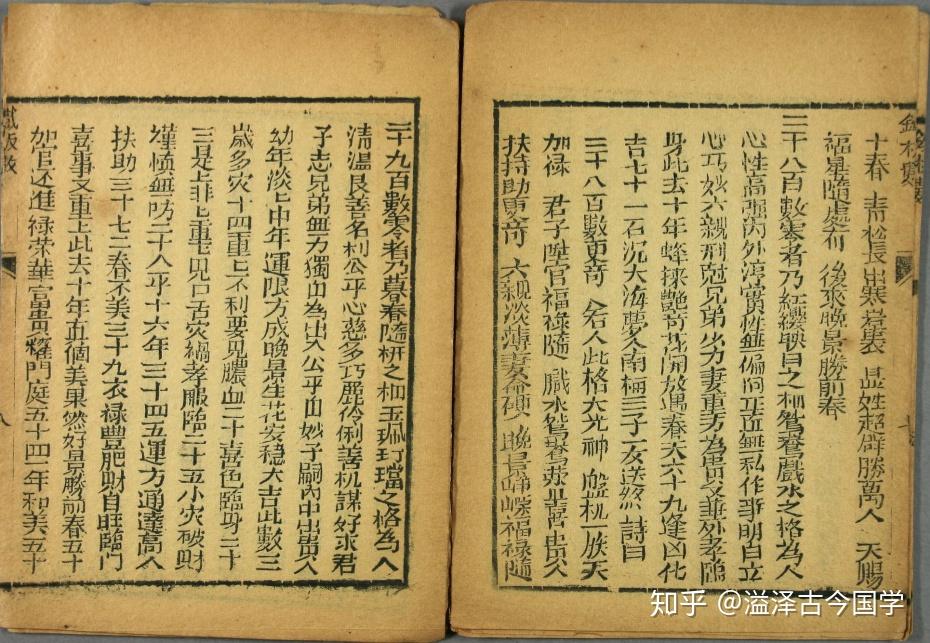 十春 青松長出寒岩裏 姓超群勝萬人 天賜
福星隨處有 後來晚景勝前春
三千八百數零者乃紅纓映日之柳鴛鴦戲水之格為人
心性高強內外淳實性無偏向正直無私作事明白立
心巧妙六親刑尅兄弟少力妻重方為貴父母外孝臨
身此去十年蜂採艷奇花開放遇春天六十九逢凶化
吉七十一石沉大海夢入南柯三子二女送終 詩曰
三千八百數更奇 為人此格大光神 盤桃一族天
加祿 君子陞官福祿隨 戲水鴛鴦 喜出貴人
扶持助更奇 六親淡薄妻命硬 晚景崢嶸福祿隨
三千九百數零者乃暮春隨柳之柳玉珮玎璫之格為人
清溫良善名利公平心慈多巧麗伶俐善机謀好求君
子志兄弟無力獨山為出入公平山妙子嗣內中出貴人
幼年淡上中年運限方成晚景生花安穩大吉此數三
歲多灾十四重上不利要見膿血二十喜色臨身二十
三是上非上重重見口舌灾禍孝服臨二十五小灾破財
謹慎無妨二十八平十六年三十四五運方通達高人
扶助三十七二春不美三十九衣祿豐肥財自旺臨門
喜事又重上此去十年真個美果然好景勝前春五十
加官还進祿荣華富貴耀門庭五十四二年和美五十
鐵版數
八
知乎 @溢泽古今国学